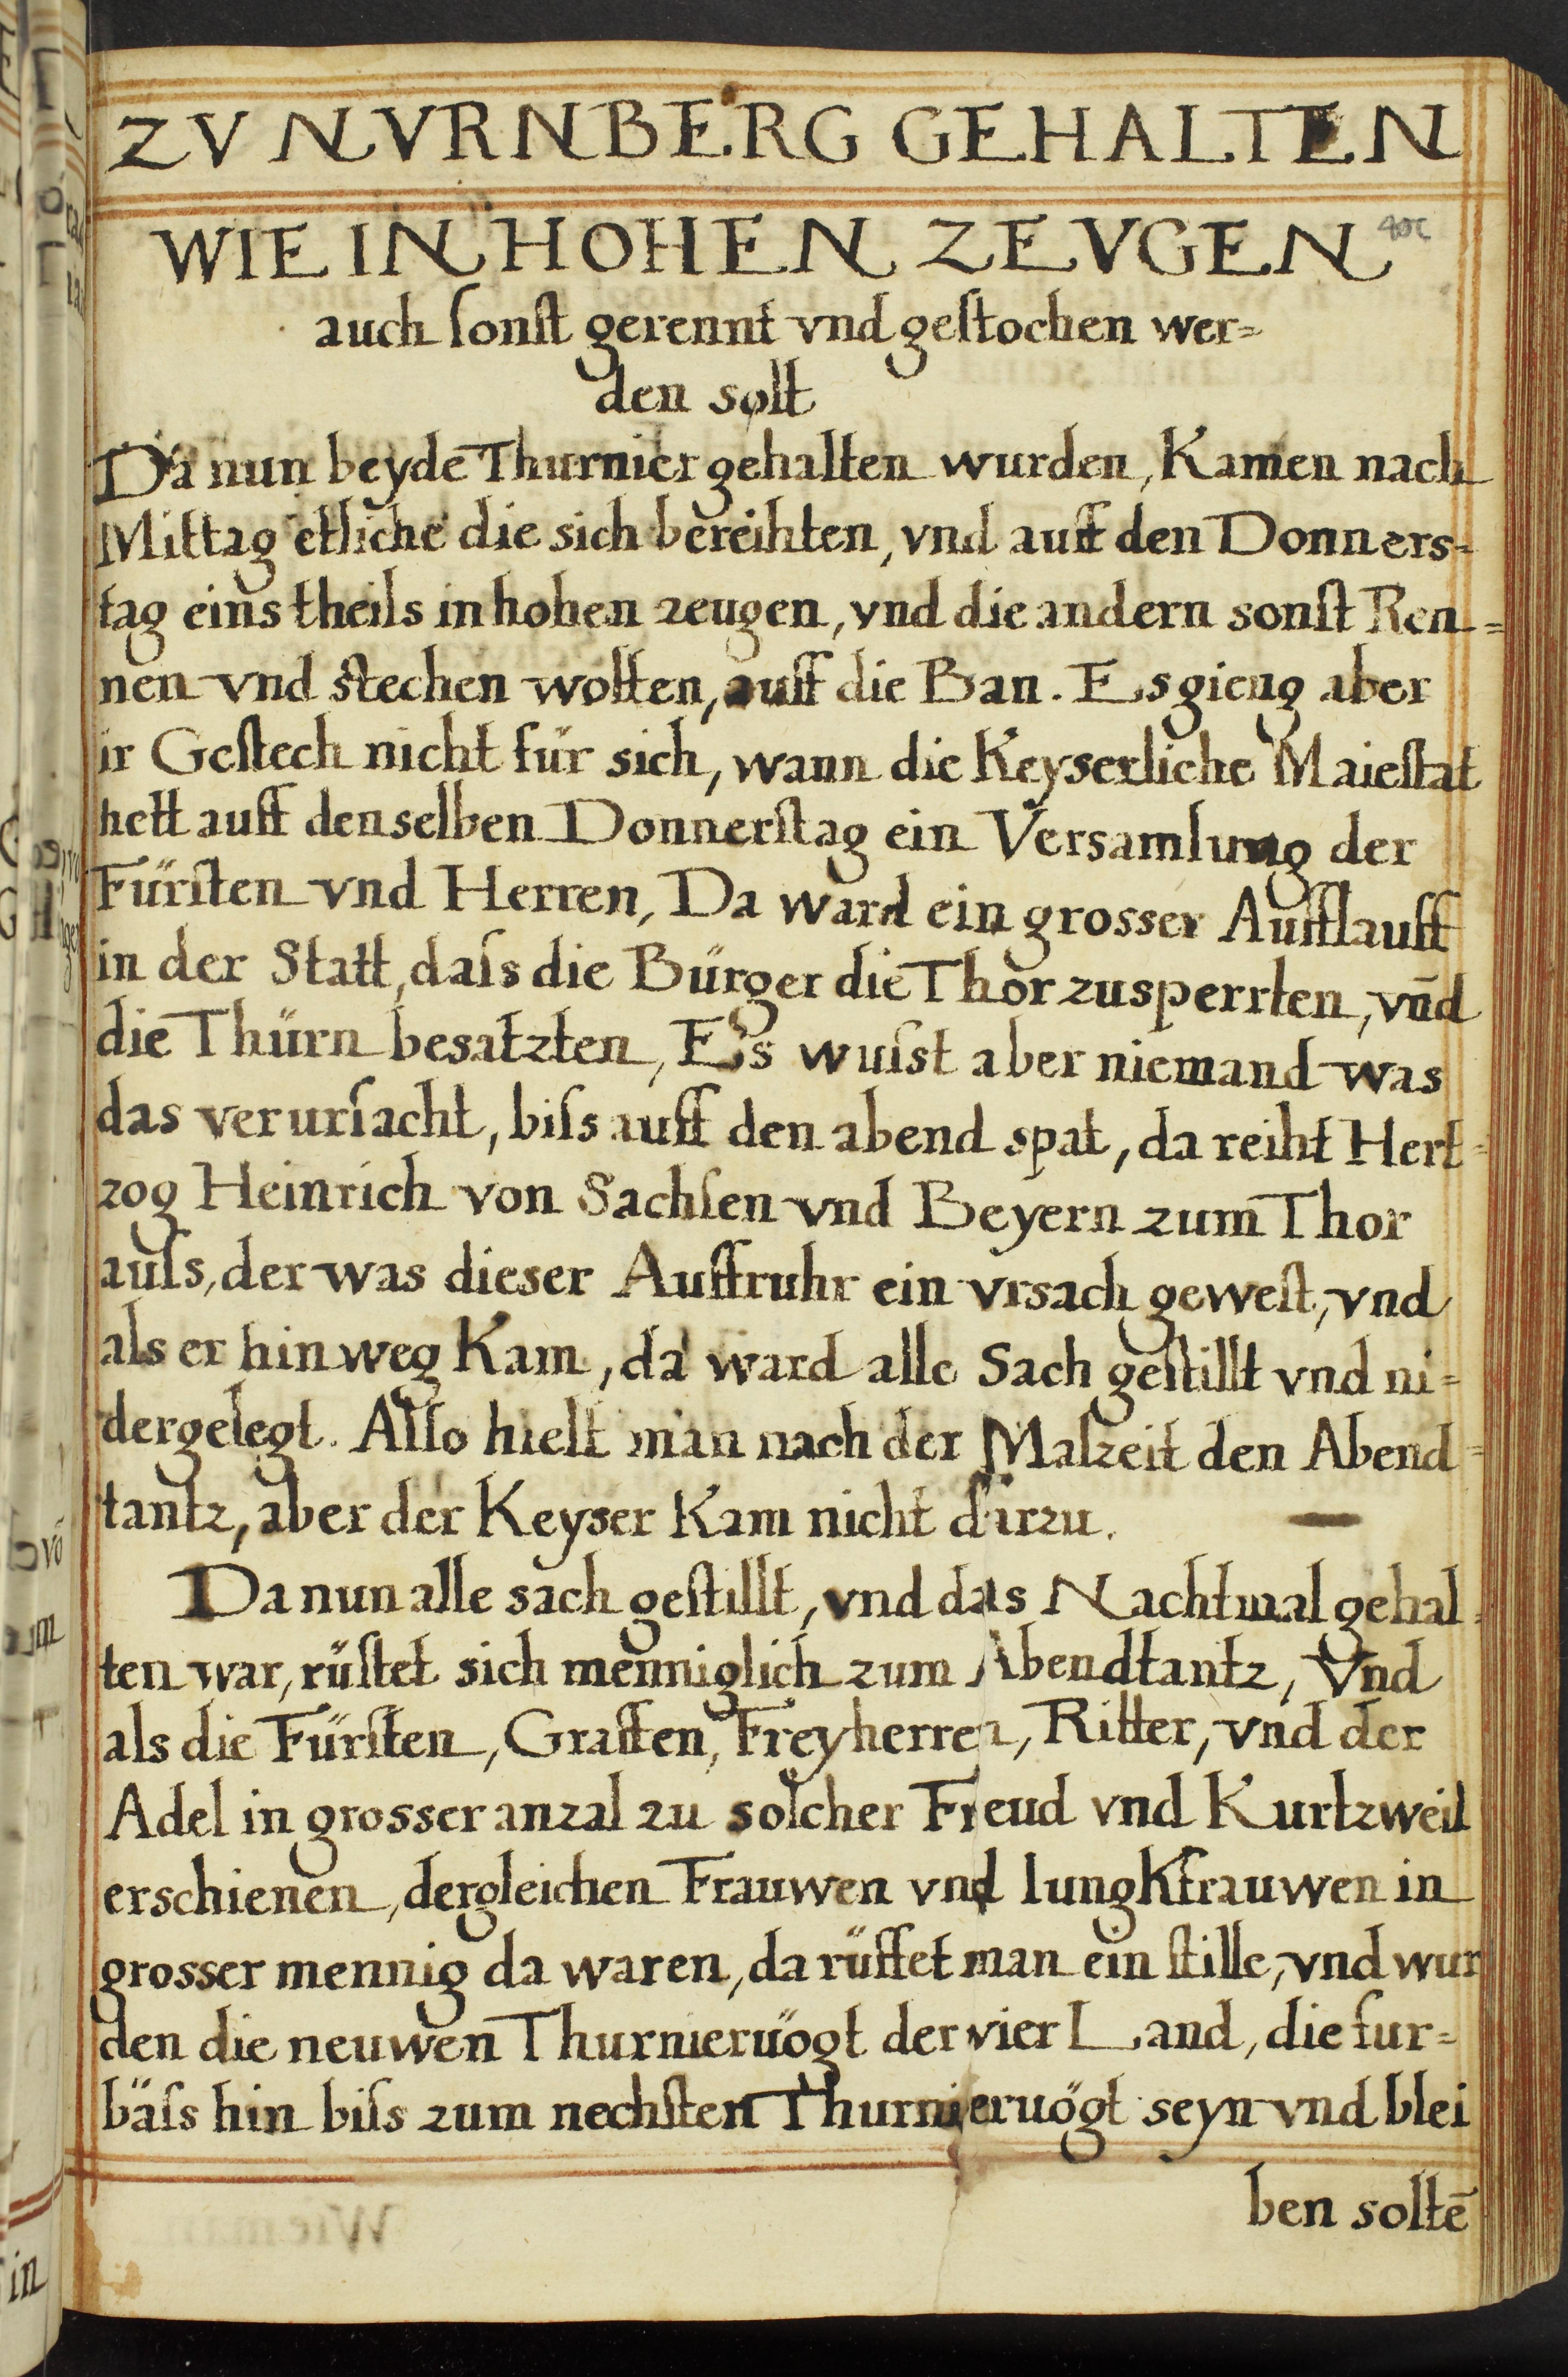 ZV NVRNBERG GEHALTEN
WIE IN HOHEN ZEVGEN
auch ſonſt gerennt vnd geſtochen wer=
den solt
Da nun beyde Thurnier gehalten wurden, Kamen nach
Mittag etliche die sich bereihten, vnd auff den Donners=
tag eins theils in hohen zeugen, vnd die andern sonſt Ren=
nen vnd ſtechen wolten, auff die Ban. Es gieng aber
ir Geſtech nicht für sich, wann die Keyserliche Maieſtat
hett auff denselben Donnerſtag ein Versamlung der
Fürſten vnd Herren, Da ward ein grosser Aufflauff
in der Statt, daſs die Bürger die Thor zusperrten, vn̄d
die Thürn besatzten, Es wuſst aber niemand was
das verurſacht, biſs auff den abend spat, da reiht Hert=
zog Heinrich von Sachſen vnd Beyern zum Thor
auſs, der was dieser Auffruhr ein vrsach geweſt, vnd
als er hinweg Kam, da ward alle Sach geſtillt vnd ni=
dergelegt. Alſo hielt man nach der Malzeit den Abend=
tantz, aber der Keyser Kam nicht darzu.
Da nun alle sach geſtillt, vnd das Nachtmal gehal=
ten war, rüſtet sich menniglich zum Abendtantz, Vnd
als die Fürſten, Graffen, Freyherren, Ritter, vnd der
Adel in grosser anzal zu solcher Freud vnd Kurtzweil
erschienen, dergleichen Frauwen vnd IungKfrauwen in
grosser mennig da waren, da rüffet man ein ſtille, vnd wur
den die neuwen Thurnieruögt der vier Land, die fur=
bäſs hin biſs zum nechſten Thurnieruögt seyn vnd blei
ben soltē